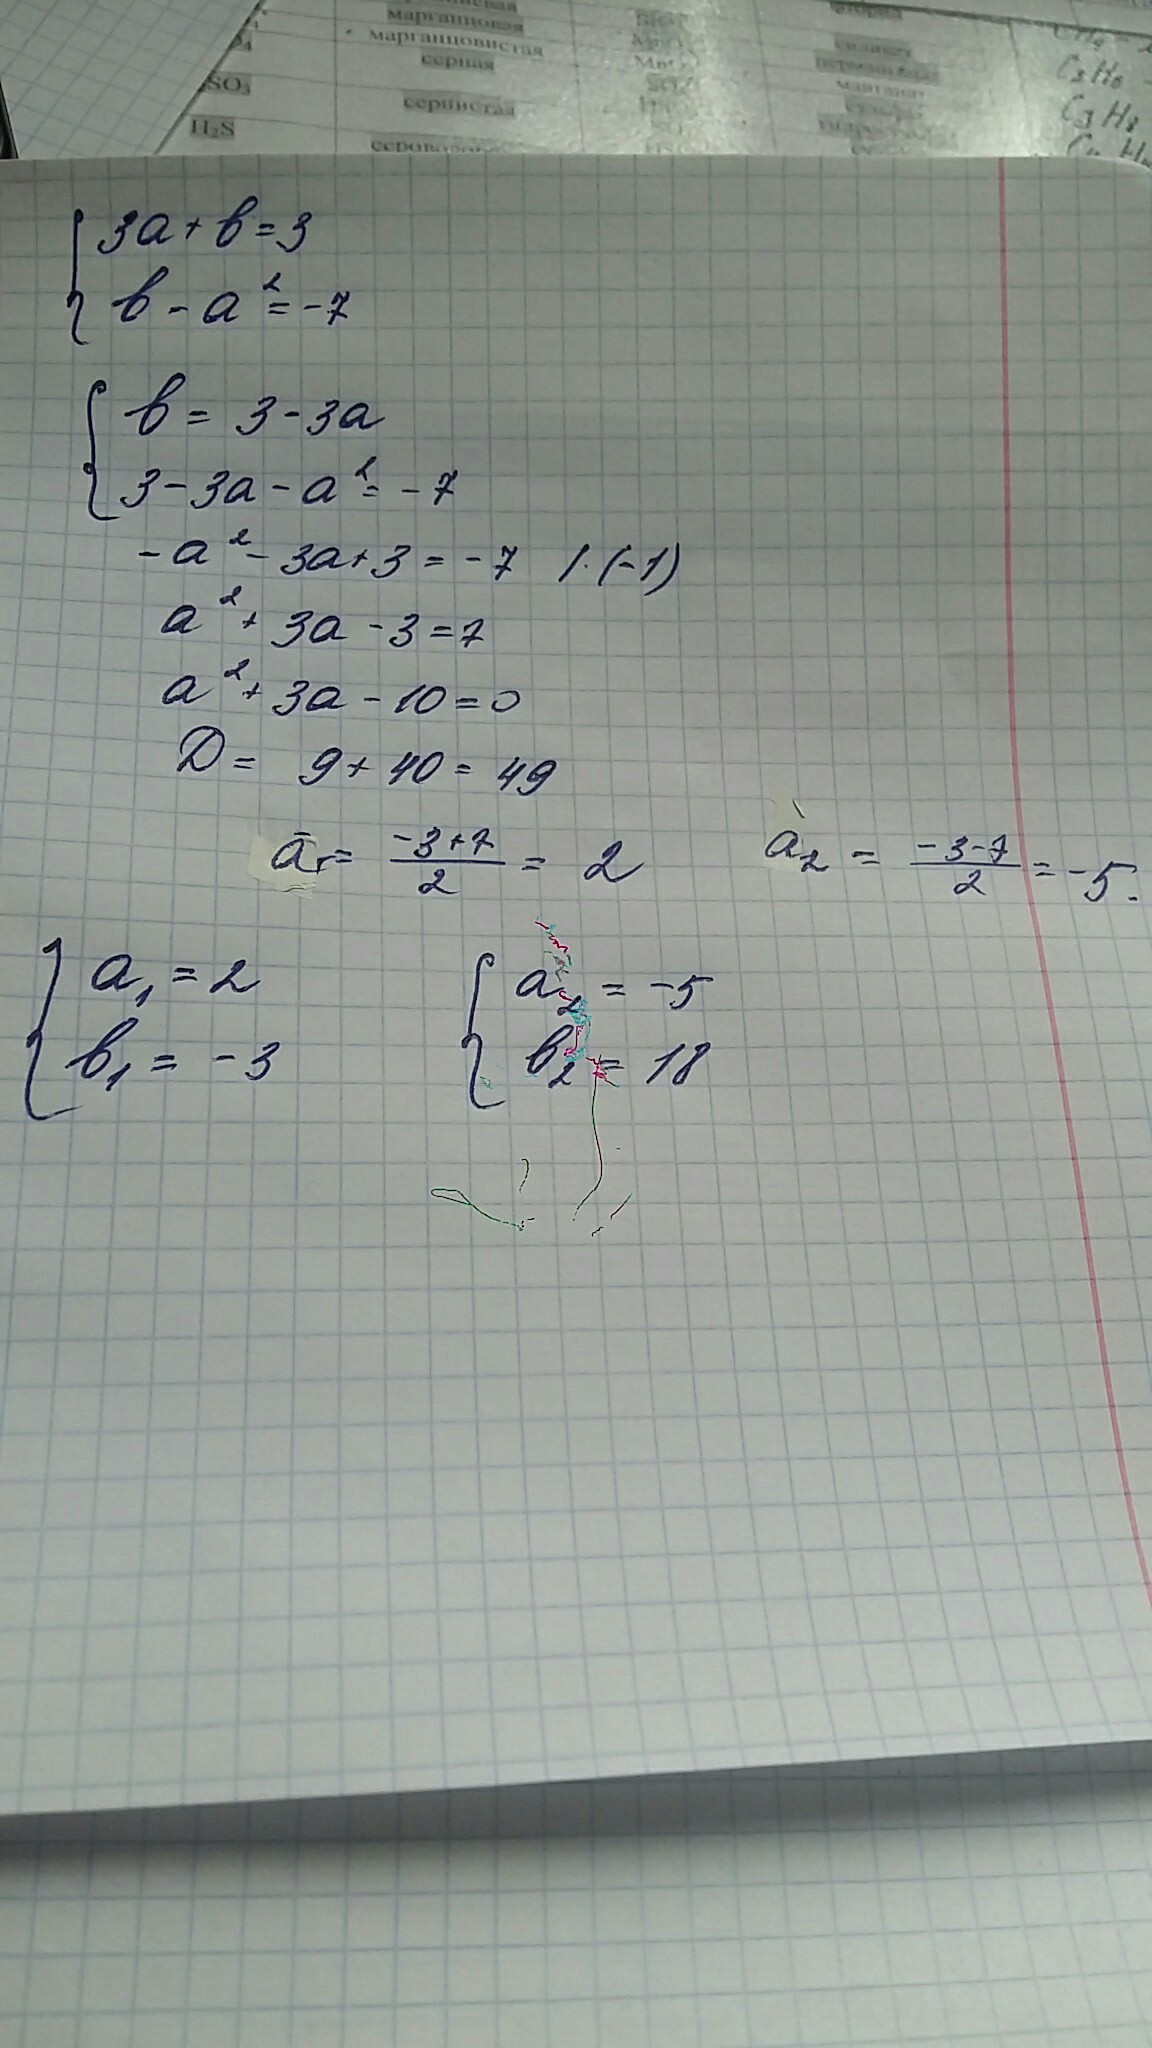 марганцовая
марганцовистая
серная
SO₃
сернистая
H₂S
C₃H₈
3a + b = 3
b - a² = -7
b = 3 - 3a
3 - 3a - a² = -7
-a² - 3a + 3 = -7 | · (-1)
a² + 3a - 3 = 7
a² + 3a - 10 = 0
D = 9 + 40 = 49
a₁ = (-3+7)/2 = 2 a₂ = (-3-7)/2 = -5.
a₁ = 2 a₂ = -5
b₁ = -3 b₂ = 18